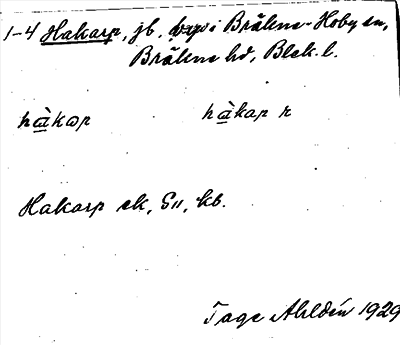 1-4 Hakarp, jb, i Bräkne-Hoby sn,
Bräkne hd, Blek. l.
hàkap hàkap r
Hakarp ek, Gs, kb.
Tage Ahldén 1929